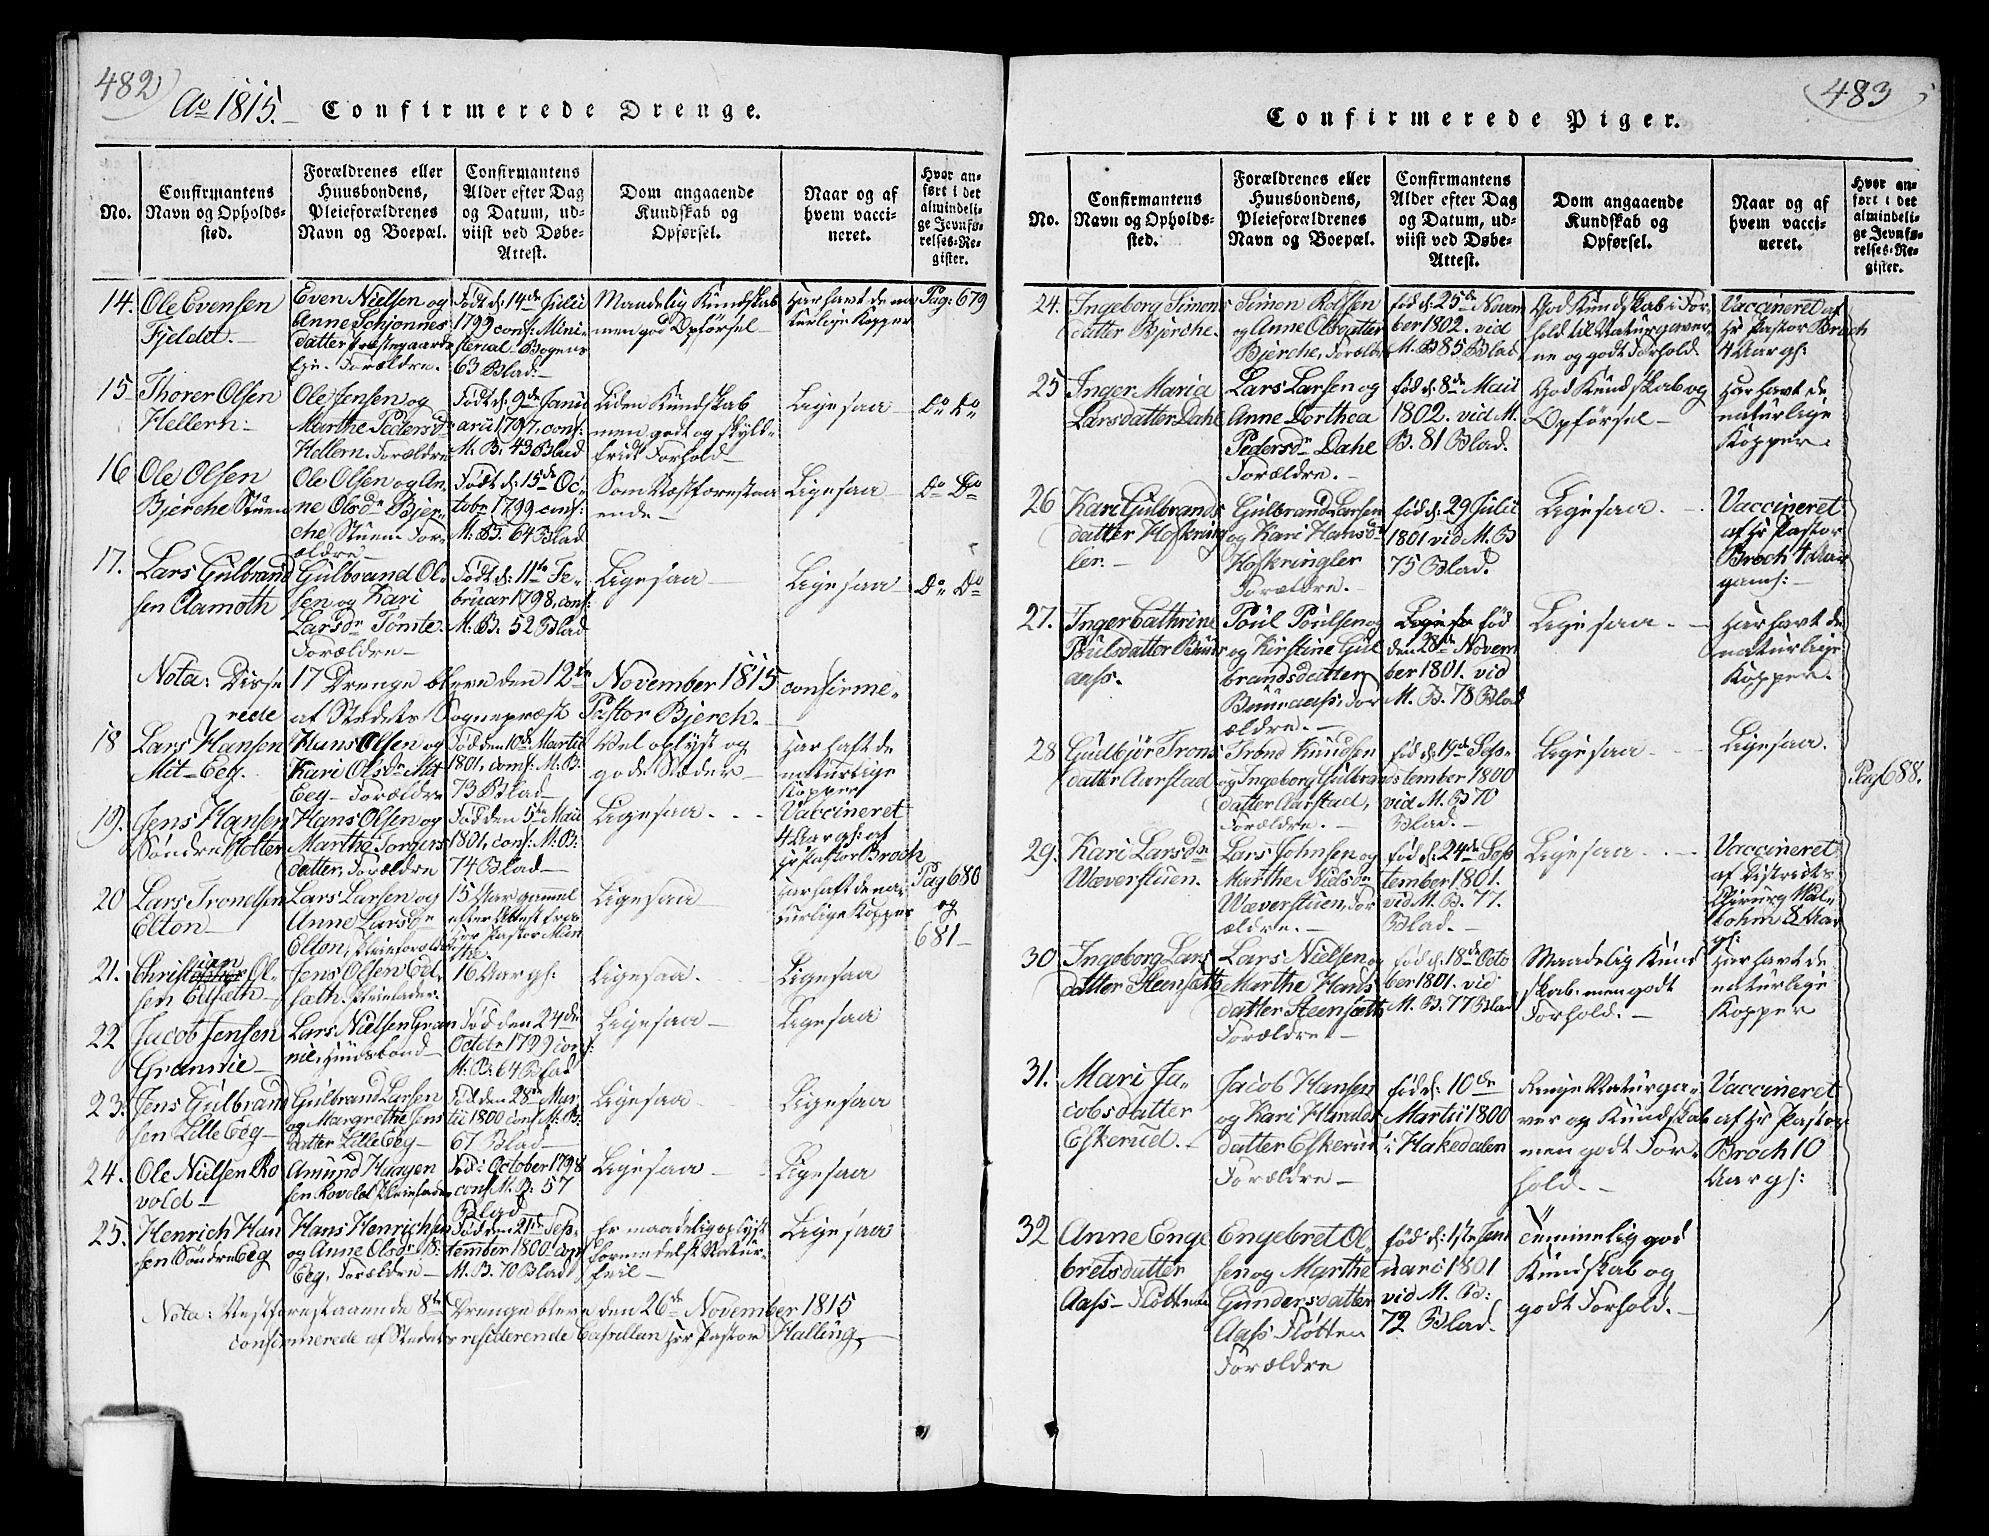 482
Ao 1815. Confirmerede Drenge.
No.
Confirmantens
Navn og Opholds-
sted.
Forældrenes eller
Huusbondens,
Pleieforældrenes
Navn og Boepæl.
Confirmantens
Alder efter Dag
og Datum, ud-
viist ved Døbe-
Attest.
Dom angaaende
Kundskab og
Opførsel.
Naar og af
hvem vacci-
neret.
Hvor an-
ført i det
almindeli-
ge Jevnfø-
relses-Re-
gister.
14.
Ole Evensen
Fjeldet.
Even Nielsen og
Anne Schjonnes
datter Præstegaards
Eje. Forældre.
Født d: 14de Julii
1799 conf: Mini-
sterial-Bogens
63 Blad.
Maadelig Kundskab
men god Opførsel
Har havt de na
turlige Kopper
Pag: 679
15
Thorer Olsen
Hellern.
Ole Jensen og
Marthe Pedersdr
Hellern. Forældre
Født d: 9de Janu
arii 1797. conf:
M. B. 43 Blad
Liden Kundskab
men godt og skyld-
frit Forhold
Ligesaa
Do Do
16
Ole Olsen
Bjerche Stuen
Ole Olsen og An-
ne Olsdr Bjer-
che Stuen. For-
ældre
Født d: 15de Oc-
tobr 1799 conf:
M. B. 64 Blad
Som Næstforestaa
ende
Ligesaa
Do Do
17.
Lars Gulbrand
sen Aamoth
Gulbrand Ol-
sen og Kari
Larsdr Tømte
Forældre
Født d: 11te Fe-
bruar 1798, conf:
M. B. 52 Blad
Ligesaa
Ligesaa
Do Do
Nota: Disse 17 Drenge bleve den 12te November 1815 confirme-
rede af Stedets Sognepræst Pastor Bjerch.
18
Lars Hansen
Mit-Eeg.
Hans Olsen og
Kari Olsdr Mit
Eeg Forældre
Fød den 10de Martii
1801, conf: M. B.
73 Blad
Vel oplyst og
gode Sæder
Har haft de
naturlige
Kopper
19.
Jens Hansen
Søndre Holter
Hans Olsen og
Marthe Torgers
datter, Forældre
Fød den 5te Maii
1801, conf: M: B:
74 Blad
Ligesaa
Vaccineret
4 Aar gl: af
Hr Pastor Broch
Pag 680
og
681
20
Lars Trondsen
Elton
Lars Larsen og
Anne Larsdr
Elton, Pleieforældre
15 Aar gammel
efter Attest fra
Hr Pastor Mun
the.
Ligesaa
Har haft de na-
turlige Kopper
21.
Christian Ol-
sen
Jens Olsen
sæth. Pleiefader
16 Aar gl:
Ligesaa
Ligesaa
22
Jacob Jensen
Grannie
Lars Nielsen Gran
nie, Huusbond
Fød den 24de
Octobr 1799 conf:
M: B: 64 Blad
Ligesaa
Ligesaa
23.
Jens Gulbrand
sen Lille Eeg
Gulbrand Larsen
og Margrethe Jens
datter Lille Eeg
Fød den 28de Mar
tii 1800 conf M: B:
67 Blad
Ligesaa
Ligesaa
24.
Ole Nielsen Ro
vold
Amund Haagen
sen Rovold Pleiefader
Fød: October 1798
conf M. B: 57
Blad
Ligesaa
Ligesaa
25.
Henrich Han
sen Søndre Eeg
Hans Henrichsen
og Anne Olsdr
Eeg, Forældre
Fød den 21de Sep
tember 1800 conf
M. B. 70 Blad
Er maadelig oplyst
formedelst Natur-
feil
Ligesaa
Nota: Næstforestaaende 8te Drenge bleve den 26de November 1815
confirmerede af Stedets residerende Capellan Hr Pastor Halling
483
Confirmerede Piger.
No.
Confirmantens
Navn og Opholds-
sted.
Forældrenes eller
Huusbondens,
Pleieforældrenes
Navn og Boepæl.
Confirmantens
Alder efter Dag
og Datum, ud-
viist ved Døbe-
Attest.
Dom angaaende
Kundskab og
Opførsel.
Naar og af
hvem vacci-
neret.
Hvor an-
ført i det
almindeli-
ge Jevnfø-
relses-Re-
gister.
24.
Ingeborg Simons
datter Bjerche.
Simon Rolfsen
og Anne Olsdatter
Bjerche, Forældre
fød d: 25de Novem
ber 1802. vid
M. B 85 Blad
God Kundskab i For
hold til Naturgaver-
ne og godt Forhold
Vaccineret af
Hr Pastor Broch
4 Aar gl:
25
Inger Maria
Larsdatter Dahl
Lars Larsen og
Anne Dorthea
Pedersdr Dahl
Forældre.
fød d: 8de Maii
1802. vid M.
B. 81 Blad.
God Kundskab og
Opførsel
Har havt de
naturlige
Kopper.
26
Kari Gulbrands
datter Hoskring
ler.
Gulbrand Larsen
og Kari Hansdr
Hoskringler
Forældre.
fød d: 29 Julii
1801 vid M. B
75 Blad.
Ligesaa.
Vaccineret
af Hr Pastor
Broch 4 Aar
gamˢ:
27.
Inger Cathrine
Poulsdatter Buur
aass.
Poul Poulsen
og Kirstine Gul
brandsdatter
Buuraass, For
ældre.
fød
den 28de Novem
ber 1801. vid
M. B. 78 Blad
Ligesaa.
Har havt de
naturlige
Kopper.
28
Gudbjør Trons
datter Aarstad
Trond Knudsen
og Ingeborg Gulbrands
datter Aarstad,
Forældre.
fød d: 19de Sep-
tember 1800
vid M. B 70
Blad.
Ligesaa
Ligesaa.
Pag 688.
29.
Kari Larsdr
Wæverstuen.
Lars Johnsen og
Marthe Nielsdr
Wæverstuen, For
ældre.
fød d: 24de Sep
tember 1801.
vid M. B. 77.
Blad.
Ligesaa
Vaccineret
af Districts
Chirurg
8 Aar
gl:
30
Ingeborg Lars
datter Steensæth
Lars Nielsen og
Marthe Hans
datter Steensæth
Forældre
fød d: 18de Octo
ber 1801. vid
M. B. 77 Blad
Maadelig Kund
skab. men godt
Forhold.
Har havt de
naturlige
Kopper
31.
Mari Ja-
cobsdatter
Eskerud.
Jacob Hansen
og Kari Haralds
datter Eskerud
Forældre
fød d: 10de
Martii 1800
i Hakedalen
Ringe Naturga-
ver og Kundskab
men godt For-
hold.
Vaccineret
af Hr Pastor
Broch 10
Aar gl:
32
Anne Enge
bretsdatter
Aass-Flotten
Engebret Ol-
sen og Marthe
Gundersdatter
Aass Flotten
Forældre
fød d: 1ste Jan
uari 1801
vid M. B:
72 Blad.
Temmelig god
Kundskab og
godt Forhold.